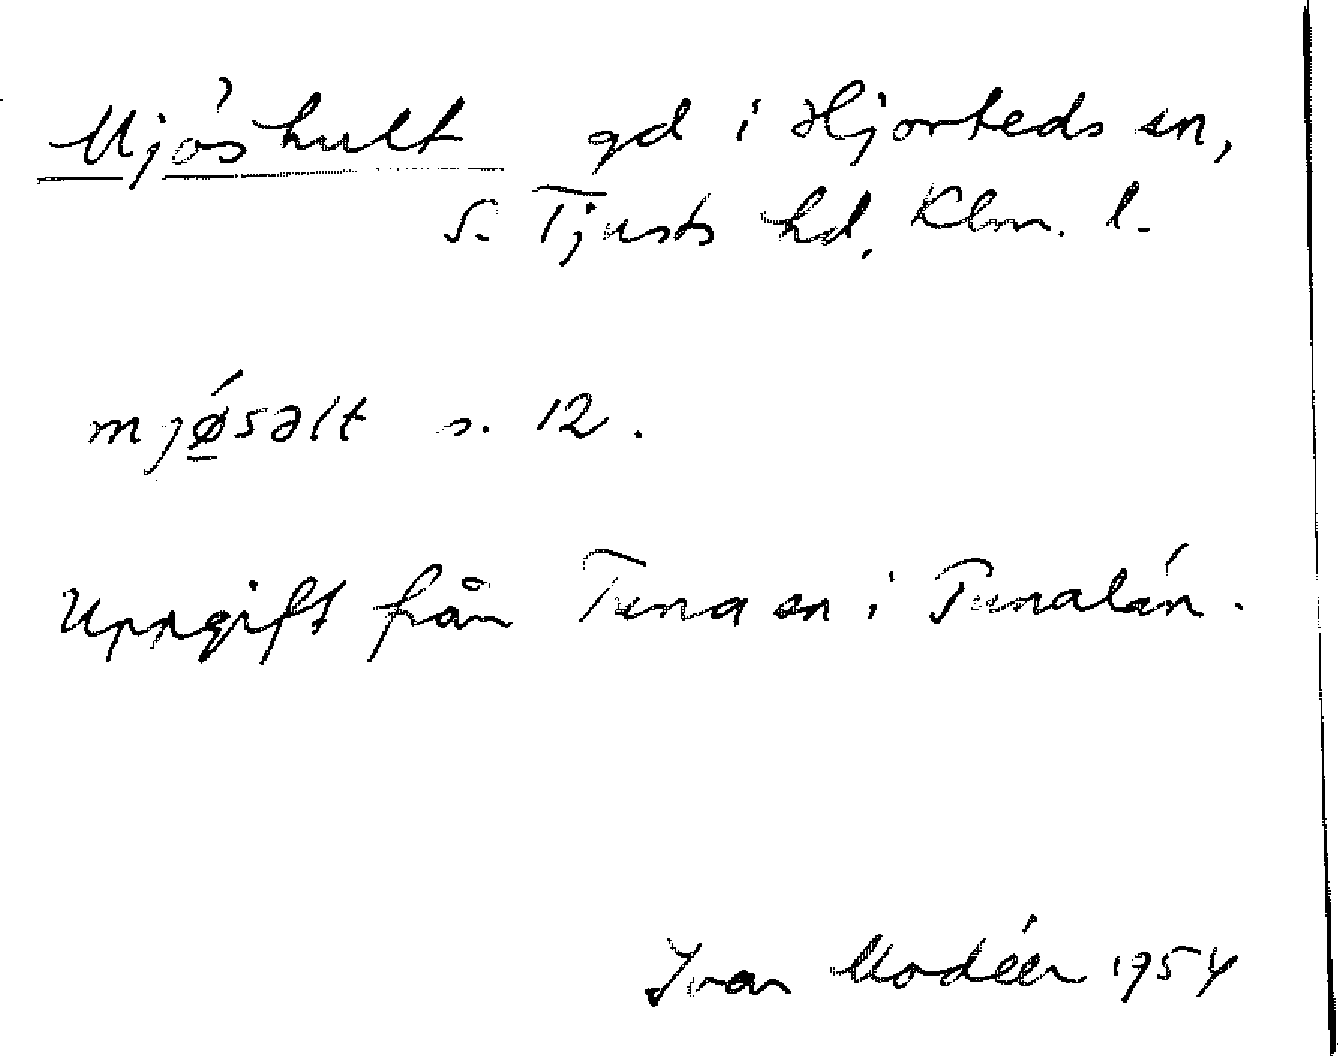 Mjöshult gd i Hjorteds sn,
S. Tjusts hd, Klm. l.
mjǿ̲səlt s. 12.
Uppgift från Tuna sn i Tunalän.
Ivar Modéer 1954